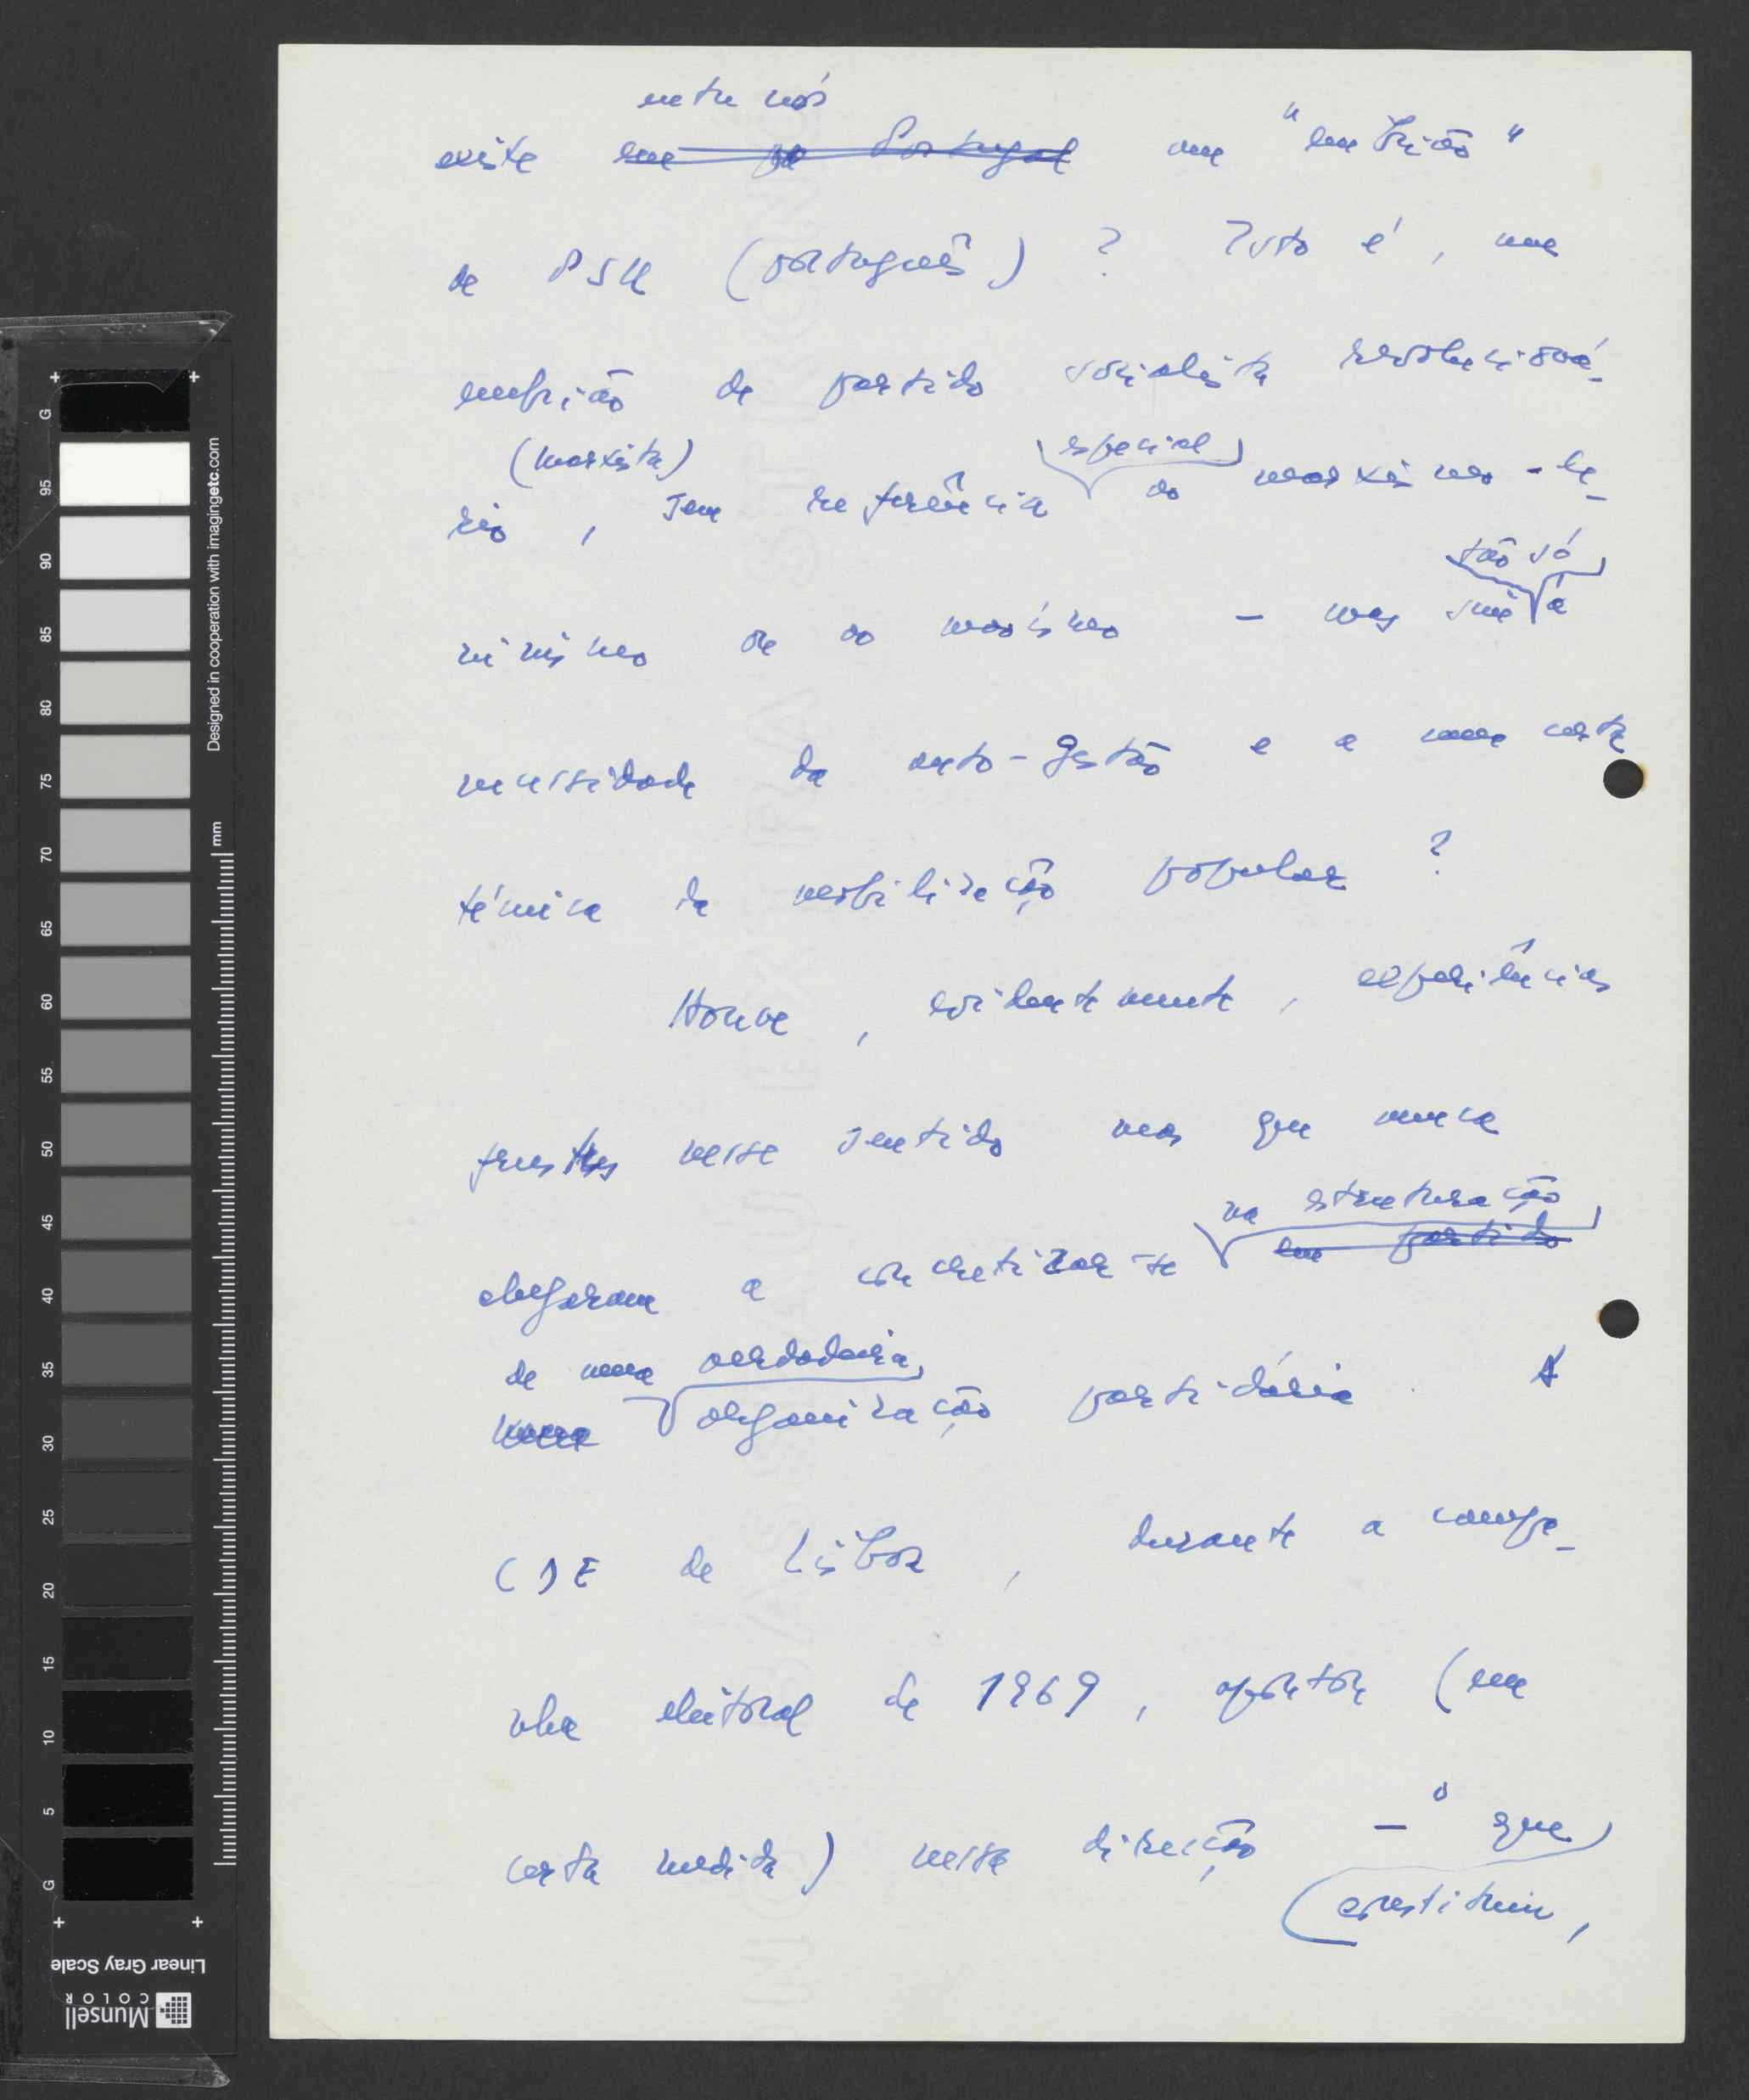 entre nós
existe em Portugal um "embrião"
de PSU (português) ? Isto é, um
embrião de partido socialista revolucioná-
(marxista) especial
rio, sem referência ao marxismo-le-
tão só
ninismo ou ao maoísmo - mas sim à
necessidade da auto-gestão e a uma certa
técnica de mobilização popular ?
Houve, evidentemente, experiências
frustes nesse sentido mas que nunca
na estruturação
chegaram a concretizar-se em partido
de uma verdadeira
numa organização partidária. A
CDE de Lisboa, durante a campa-
nha eleitoral de 1969, apontou (em
certa medida) nessa direcção - o que
constituiu,
G
95
90
85
80
75
70
65
60
55
50
45
40
35
30
25
20
15
10
5
G
mm
Designed in cooperation with imagingetc.com
Linear Gray Scale
Munsell
COLOR